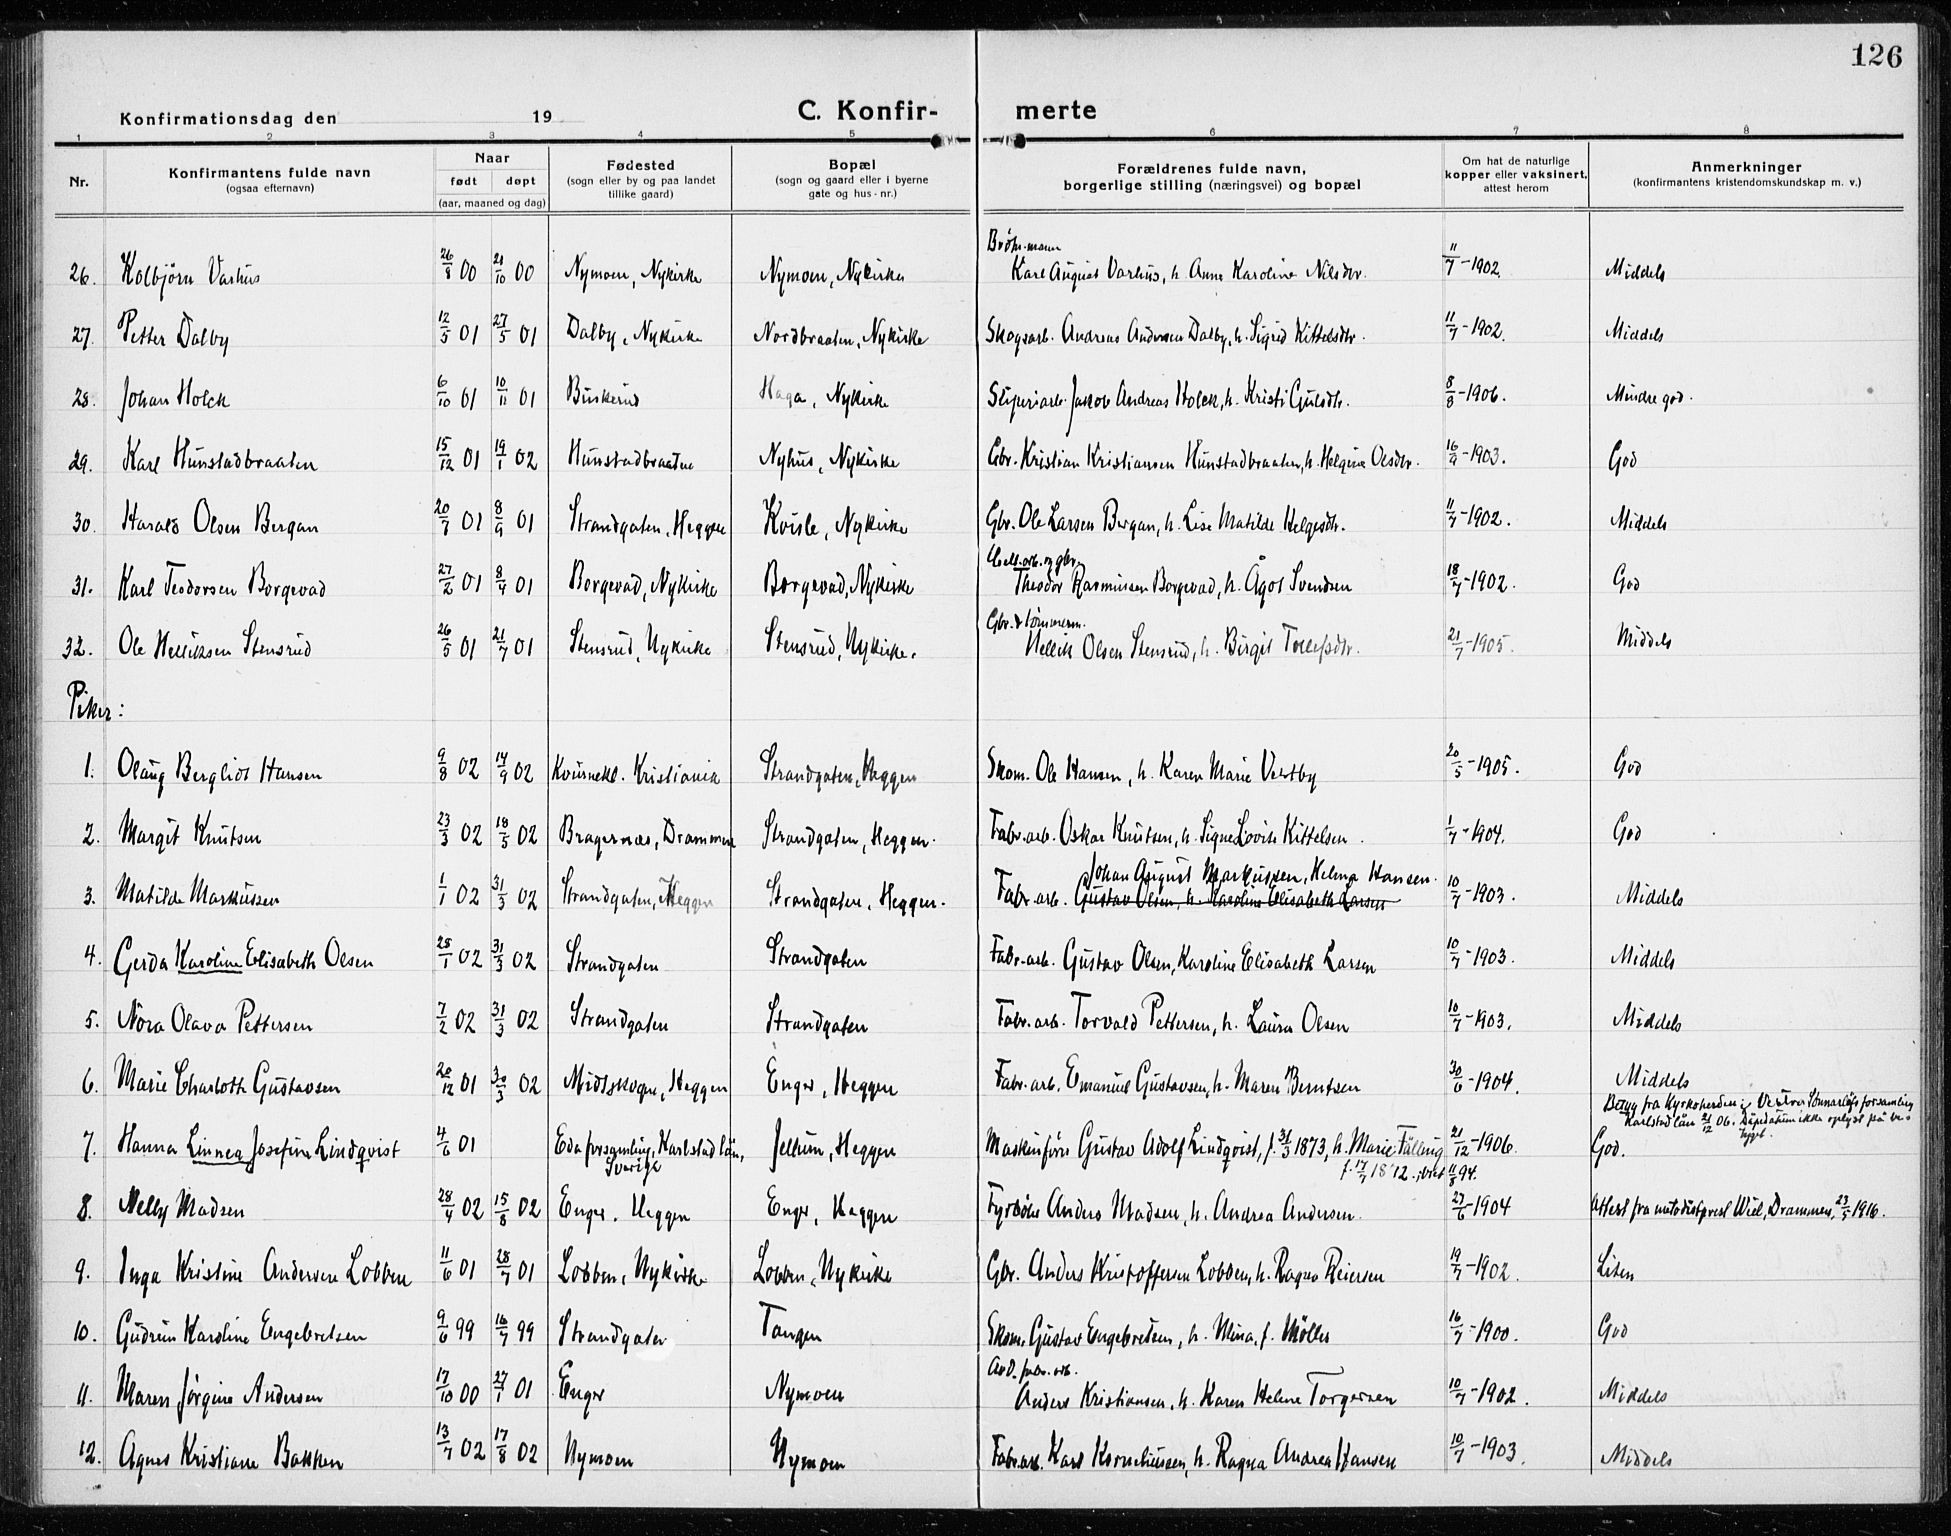 126
Konfirmationsdag den 19
C. Konfir- merte
1 2 3 4 5 6 7 8
Nr. | Konfirmantens fulde navn (ogsaa efternavn) | Naar født døpt (aar, maaned og dag) | Fødested (sogn eller by og paa landet tillike gaard) | Bopæl (sogn og gaard eller i byerne gate og hus-nr.) | Forældrenes fulde navn, borgerlige stilling (næringsvei) og bopæl | Om hat de naturlige kopper eller vaksinert, attest herom | Anmerkninger (konfirmantens kristendomskundskap m. v.)
26. Kolbjørn Varhus 26/8 00 21/10 00 Nymoen, Nykirke Nymoen, Nykirke Karl August Varhus, h. Anne Karoline Nilsdtr. 11/7-1902. Middels
27. Petter Dalby 12/5 01 27/5 01 Dalby, Nykirke Nordbraaten, Nykirke Skogsarb. Andreas Andersen Dalby, h. Sigrid Kittelsdtr. 11/7-1902. Middels
28. Johan Holck 6/10 01 10/11 01 Buskerud Haga, Nykirke Sliperiarb. Jakob Andreas Holck, h. Kristi Gulsdtr. 8/8-1906. Mindre god.
29. Karl Hunstadbraaten 15/12 01 19/1 02 Hunstadbraaten Nyhus, Nykirke Gbr. Kristian Kristiansen Hunstadbraaten, h. Helgine Olsdtr. 16/9-1903. God
30. Harald Olsen Bergan 20/7 01 8/9 01 Strandgaten, Heggen Kvisle, Nykirke Gbr. Ole Larsen Bergan, h. Lise Matilde Helgesdtr. 11/7-1902. Middels
31. Karl Teodorsen Borgevad 27/2 01 8/4 01 Borgevad, Nykirke Borgevad, Nykirke Cell.arb. og gbr. Theodor Rasmussen Borgevad, h. Ågot Svendsen 18/7-1902. God
32. Ole Helliksen Stensrud 26/5 01 21/7 01 Stensrud, Nykirke Stensrud, Nykirke. Gbr. & tømmerm. Hellik Olsen Stensrud, h. Birgit Tollefsdtr. 21/7-1905. Middels
Piker:
1. Olaug Bergliot Hansen 9/8 02 14/9 02 Kvinnekl. Kristiania Strandgaten, Heggen Skom. Ole Hansen, h. Karen Marie Vestby 20/5-1905. God
2. Margit Knutsen 23/3 02 18/5 02 Bragernæs, Drammen Strandgaten, Heggen. Fabr.arb. Oskar Knutsen, h. Signe Lovise Kittelsen. 1/7-1904. God
3. Matilde Markussen 1/1 02 31/3 02 Strandgaten, Heggen Strandgaten, Heggen. Fabr.arb. Johan August Markussen, Helma Hansen. Gustav Olsen, h. Karoline Elisabeth Larsen 10/7-1903. Middels
4. Gerda Karoline Elisabeth Olsen 28/1 02 31/3 02 Strandgaten Strandgaten Fabr.arb. Gustav Olsen, Karoline Elisabeth Larsen 10/7-1903. Middels
5. Nora Olava Pettersen 7/2 02 31/3 02 Strandgaten Strandgaten Fabr.arb. Torvald Pettersen, h. Laura Olsen 10/7-1903. Middels
6. Marie Charloth Gustavsen 20/12 01 30/3 02 Midtskogen, Heggen Enger, Heggen Fabr.arb. Emanuel Gustavsen, h. Maren Berntsen 30/6-1904. Middels
7. Hanna Linnea Josefine Lindqvist 4/6 01 Eda forsamling, Karlstad län, Sverige Jellum, Heggen Maskinfører Gustav Adolf Lindqvist, f. 31/3 1873, h. Marie Fälling f. 17/7 1872, viet 11/8 94. 21/12-1906. Betyg fra Kyrkoherden i Vestra forsamling Karlstad län 21/12 06. Dåpdatum ikke oplyst på betyget. God.
8. Nelly Madsen 28/4 02 15/8 02 Enger, Heggen Enger, Heggen Fyrbøter Anders Madsen, h. Andrea Andersen. 27/6-1904 Attest fra metodistprest Wiel, Drammen, 23/5 1916.
9. Inga Kristine Andersen Lobben 11/6 01 28/7 01 Lobben, Nykirke Lobben, Nykirke Gbr. Anders Kristoffersen Lobben, h. Ragna Reiersen 19/7-1902. Liten
10. Gudrun Karoline Engebretsen 9/6 99 16/7 99 Strandgaten Tangen Skom. Gustav Engebretsen, h. Mina, f. Møller 16/7-1900. God
11. Maren Jørgine Andersen 17/10 00 27/1 01 Enger Nymoen Avd. fabr. arb. Anders Kristiansen, h. Karen Helene Torgersen 10/7-1902. Middels
12. Agnes Kristiane Bakken 13/7 02 17/8 02 Nymoen Nymoen Fabr.arb. Karl Korneliussen, h. Ragna Andrea Hansen 10/7-1903. Middels